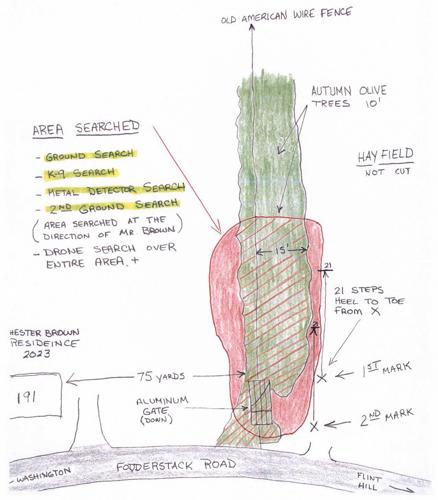 OLD AMERICAN WIRE FENCE
AUTUMN OLIVE
TREES 10'
AREA SEARCHED
- GROUND SEARCH
- K-9 SEARCH
- METAL DETECTOR SEARCH
- 2ND GROUND SEARCH
(AREA SEARCHED AT THE
DIRECTION OF MR. BROWN)
- DRONE SEARCH OVER
ENTIRE AREA. +
HAY FIELD
NOT CUT
15'
21
21 STEPS
HEEL TO TOE
FROM X
HESTER BROWN
RESIDEINCE
2023
191
75 YARDS
ALUMINUM
GATE
(DOWN)
X
1ST MARK
X
2ND MARK
WASHINGTON
FODDERSTACK ROAD
FLINT
HILL